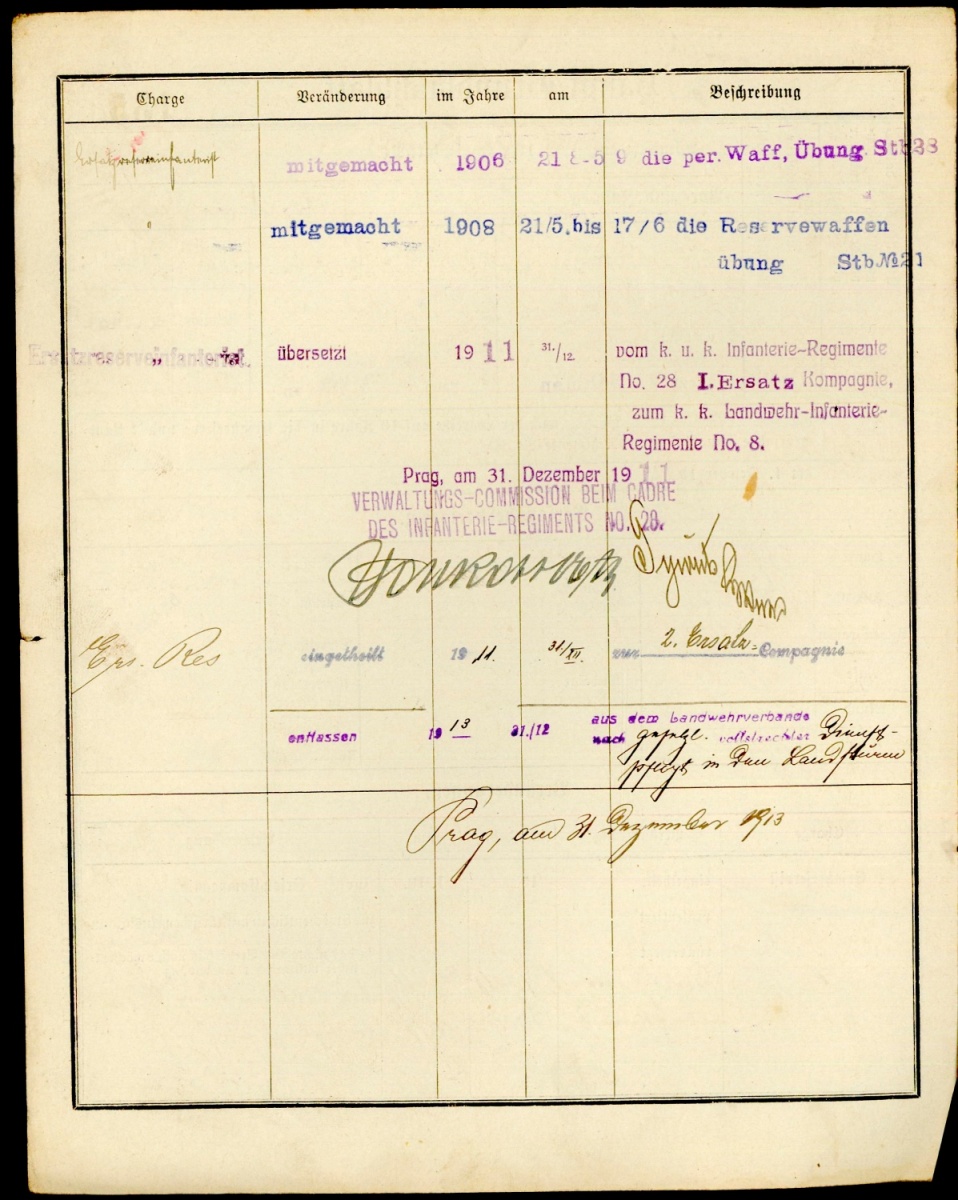 Charge Veränderung im Jahre am Beschreibung
Ersatzreserveinfanterist mitgemacht 1906 21 8-5 9 die per. Waff, Übung Stb28
" mitgemacht 1908 21/5.bis 17/6 die Reservewaffen
übung Stb№21
Ersatzreserveinfanterist. übersetzt 1911 31./12. vom k. u. k. Infanterie-Regimente
No. 28 I. Ersatz Kompagnie,
zum k. k. Landwehr-Infanterie-
Regimente No. 8.
Prag, am 31. Dezember 1911
VERWALTUNGS-COMMISSION BEIM CADRE
DES INFANTERIE-REGIMENTS NO. 28.
Ers. Res eingetheilt 1911. 31/XII. zur 2. Ersatz-Compagnie
entlassen 1913 31./12 aus dem Landwehrverbande
nach gesetzl. vollstreckter Dienst-
pflicht in den Landsturm
Prag, am 31. Dezember 1913